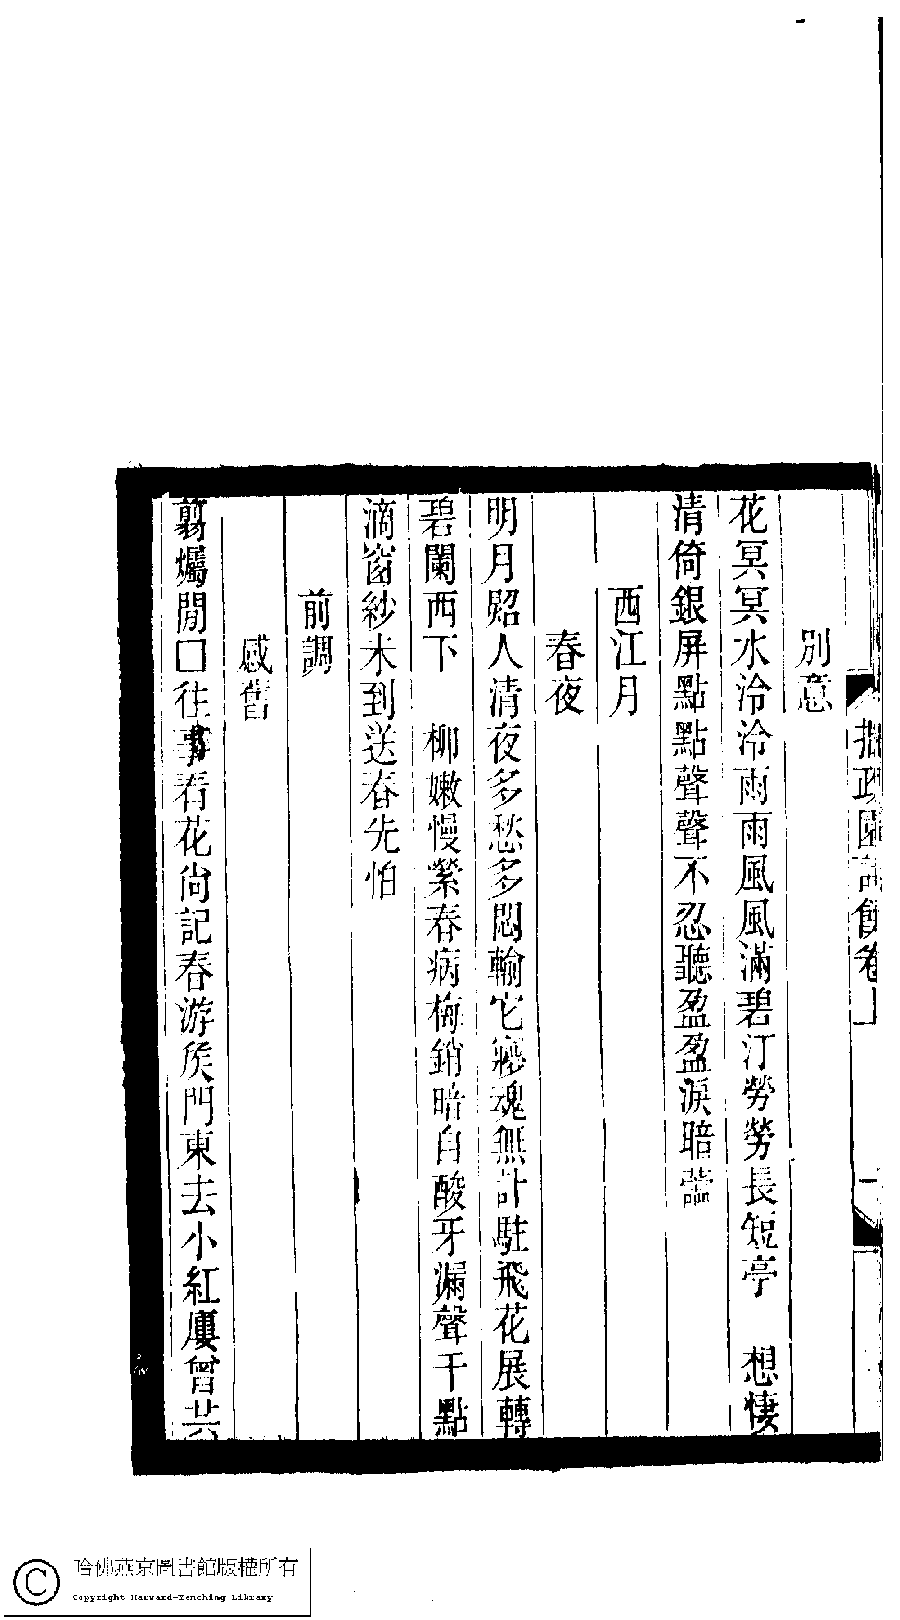 別意
花冥冥水泠泠雨雨風風滿碧汀勞勞長短亭　想悽
清倚銀屏點點聲聲不忍聽盈盈淚暗
西江月
春夜
明月照人清夜多愁多悶輸它魂無計駐飛花展轉
碧闌西下　柳嫩慢縈春病梅銷暗自酸牙漏聲千點
滴窗紗未到送春先怕
前調
感舊
翦燭閒□往事看花尙記春游侯門東去小紅樓曾共
拙政園詩餘卷上
一
哈佛燕京圖書館版權所有
Copyright Harvard-Yenching Library